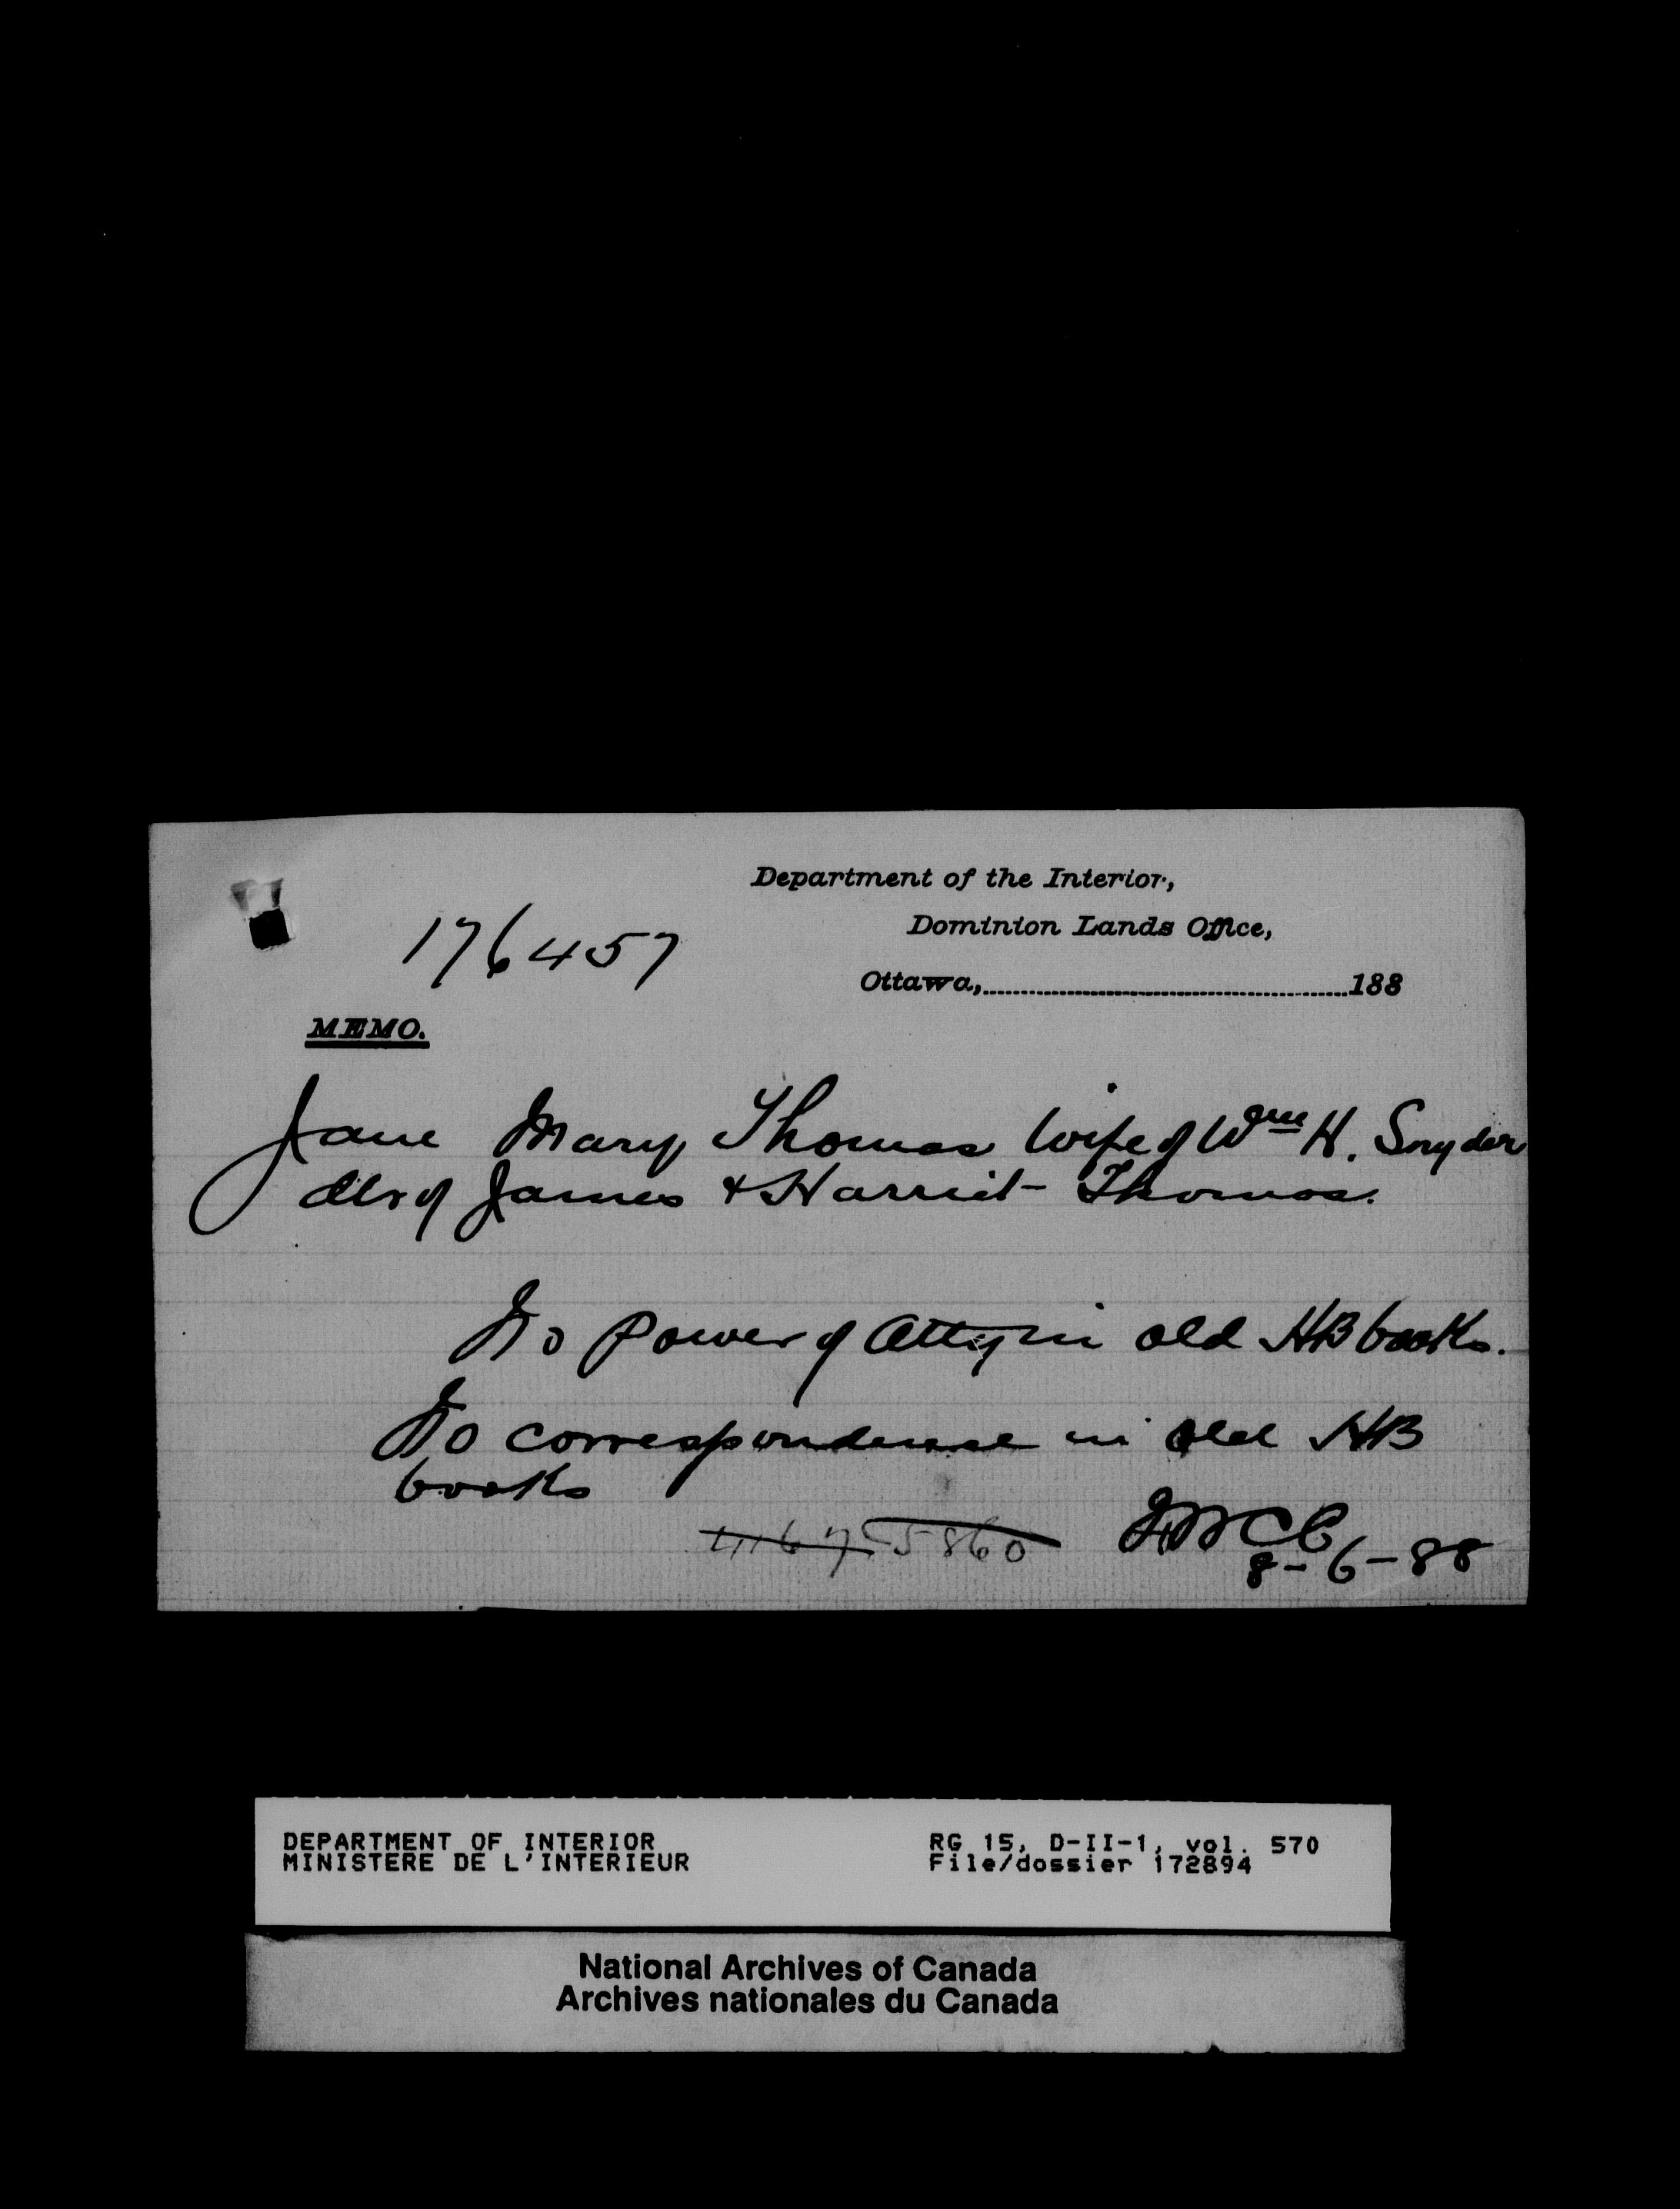 Department of the Interior,
Dominion Lands Office,
176457
Ottawa, 188
MEMO.
Jane Mary Thomas wife of Wm H. Snyder
dtr of James & Harriet Thomas.
No Power of Atty in old HB books.
No correspondence in old HB
books
5860
8-6-88
DEPARTMENT OF INTERIOR
MINISTERE DE L'INTERIEUR
RG 15, D-II-1, vol. 570
File/dossier 172894
National Archives of Canada
Archives nationales du Canada